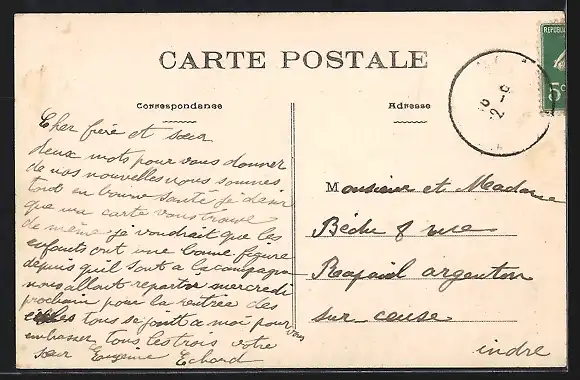 CARTE POSTALE
Correspondance
Adresse
Cher frère et sœur
deux mots pour vous donner
de nos nouvelles nous sommes
tout en bonne santé je désir
que ma carte vous trouve
de même je voudrait que les
enfants ont une bonne figure
depuis quil sont a la campagne
nous allont repartir mercredi
prochain pour la rentrée des
tous se joitt a moi pour vous
embrasser tous les trois votre
sœur Eugenie Echard
Monsieur et Madame
Béchu 8 rue
argenton
sur-creuse
indre
REPUBLIQ
5c